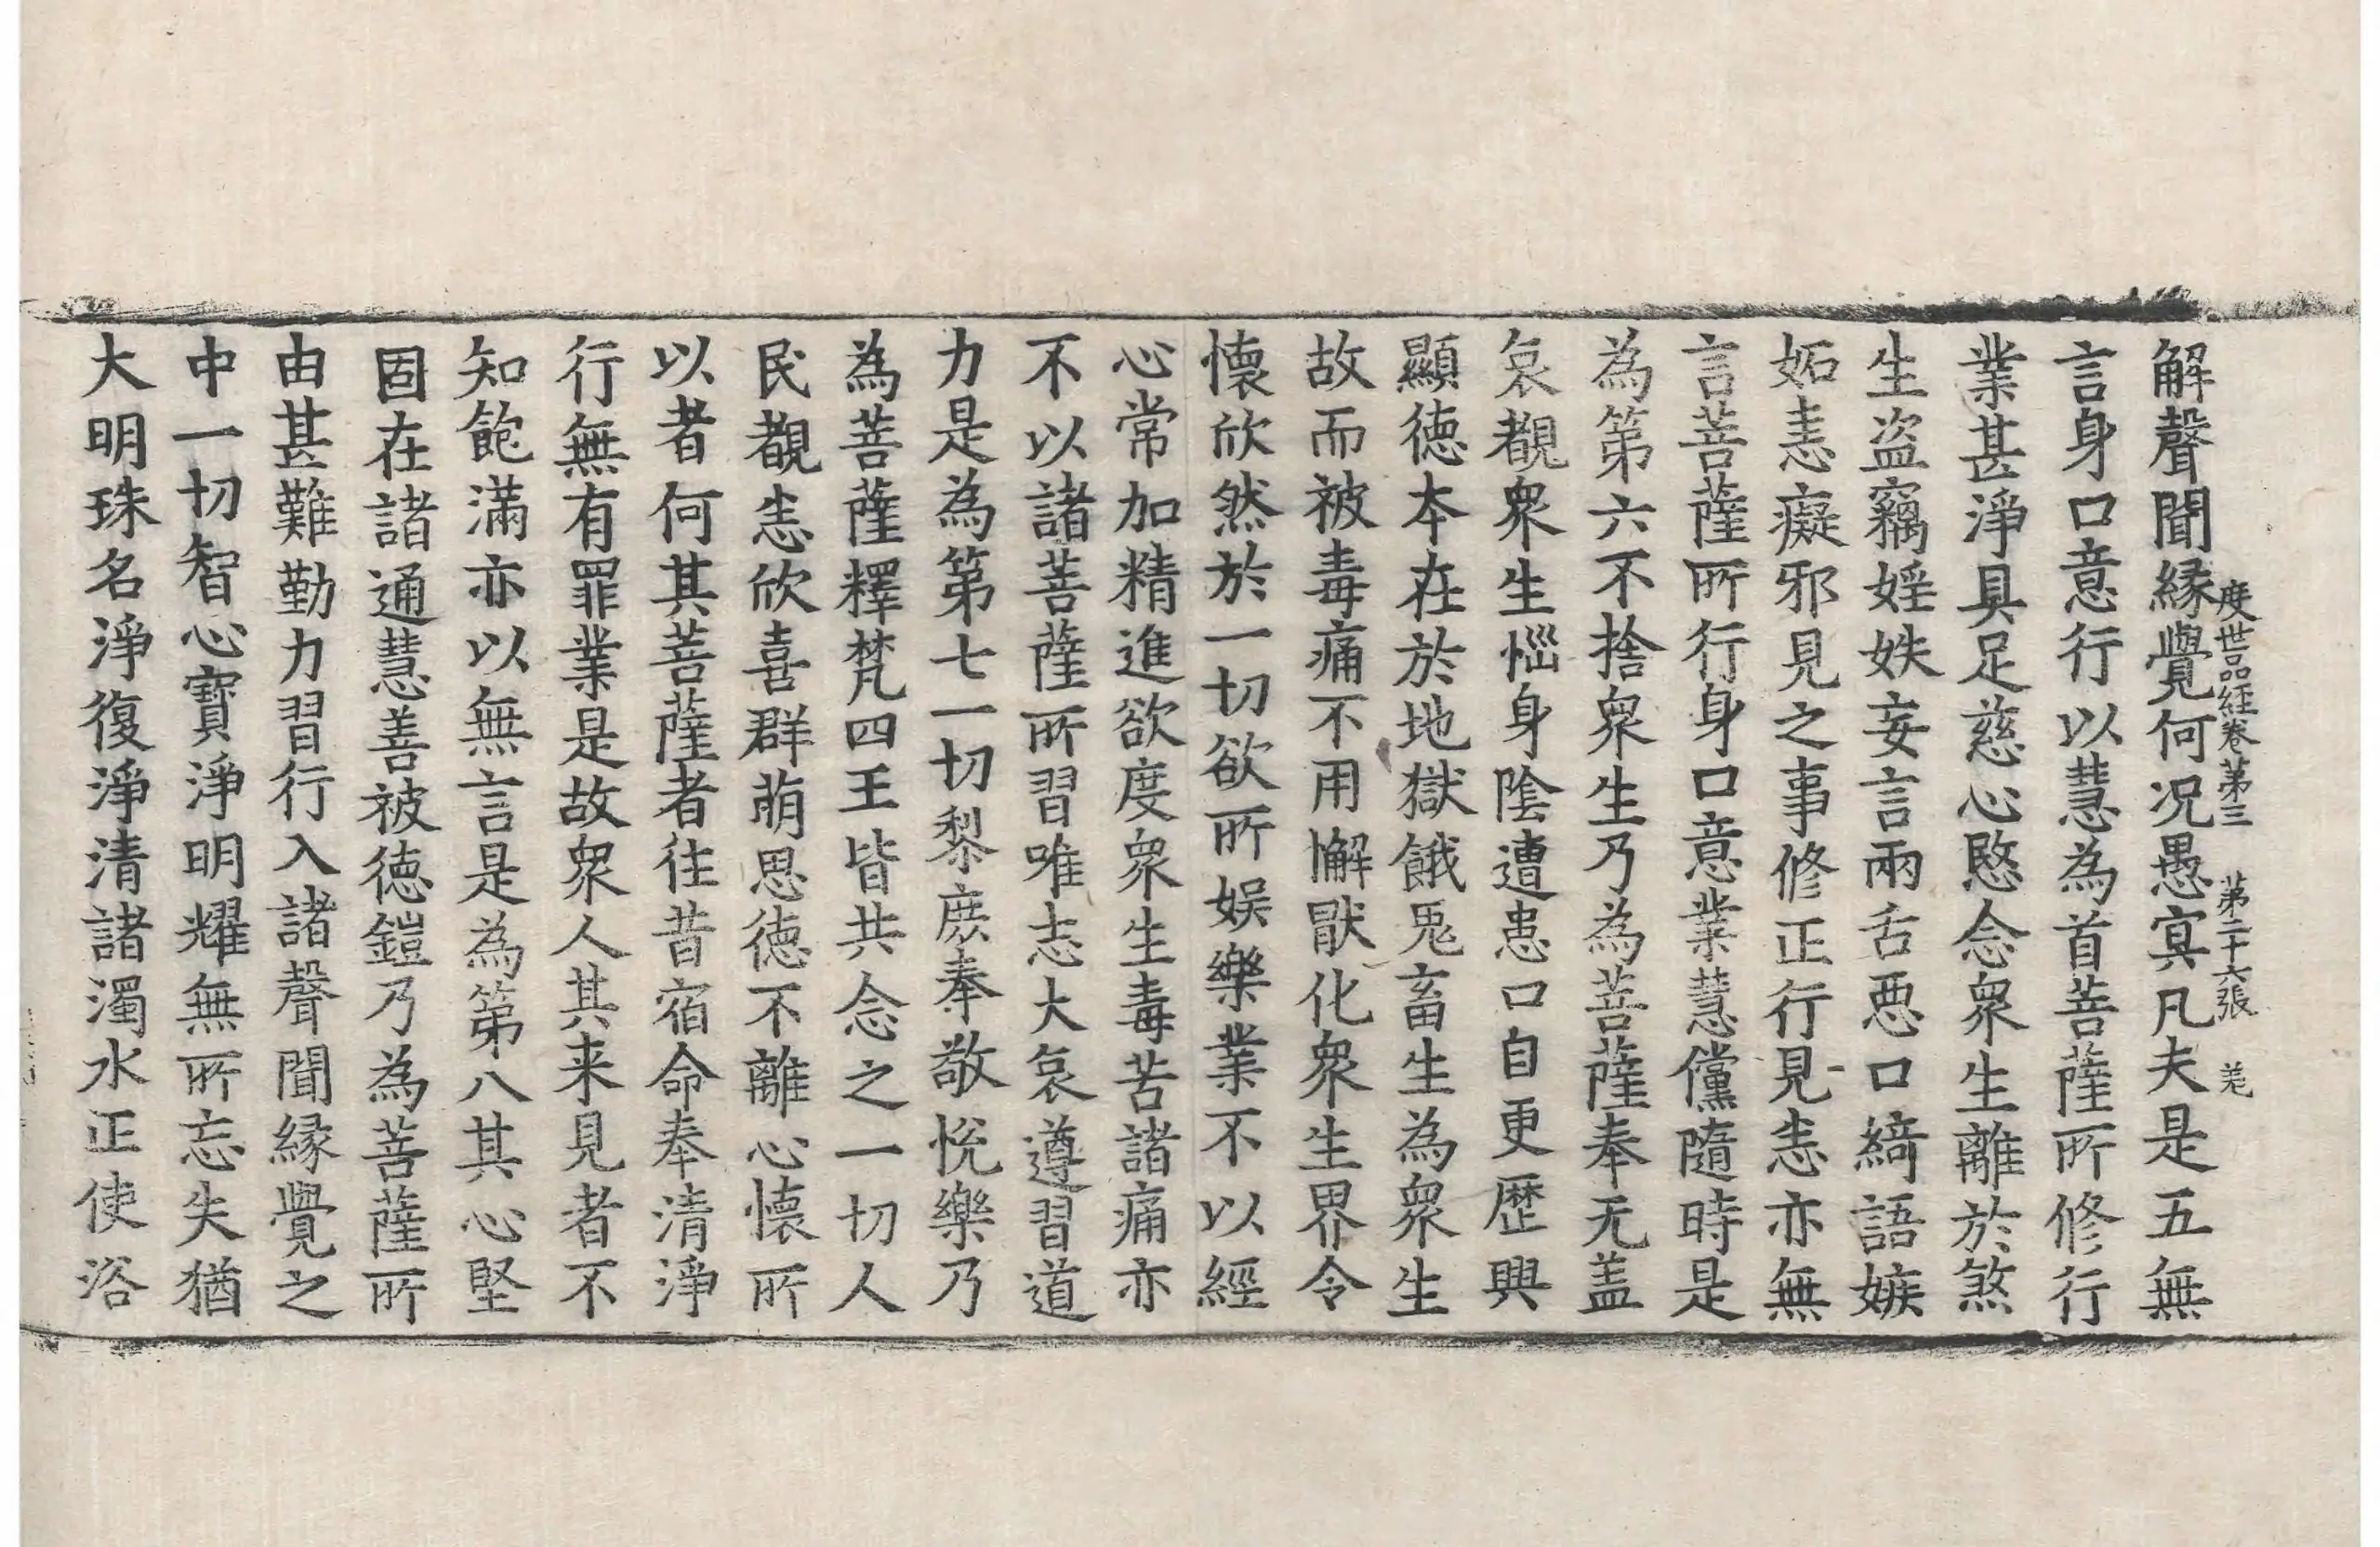 度世品経卷第三　第二十六張　羌
解聲聞縁覺何况愚冥凡夫是五無
言身口意行以慧為首菩薩所修行
業甚淨具足慈心愍念衆生離於煞
生盜竊婬妷妄言兩舌惡口綺語嫉
妬恚癡邪見之事修正行見恚亦無
言菩薩所行身口意業慧儻隨時是
為第六不捨衆生乃為菩薩奉无盖
哀覩衆生惱身隂遭患口自更歷興
顯徳本在於地獄餓鬼畜生為衆生
故而被毒痛不用懈猒化衆生界令
懷欣然於一切欲所娱樂業不以經
心常加精進欲度衆生毒苦諸痛亦
不以諸菩薩所習唯志大哀遵習道
力是為第七一切黎庶奉敬悅樂乃
為菩薩釋梵四王皆共念之一切人
民覩恚欣喜群萌思徳不離心懷所
以者何其菩薩者往昔宿命奉清淨
行無有罪業是故衆人其来見者不
知飽滿亦以無言是為第八其心堅
固在諸通慧善被徳鎧乃為菩薩所
由甚難勤力習行入諸聲聞縁覺之
中一切智心寶淨明耀無所忘失猶
大明珠名淨復淨清諸濁水正使浴